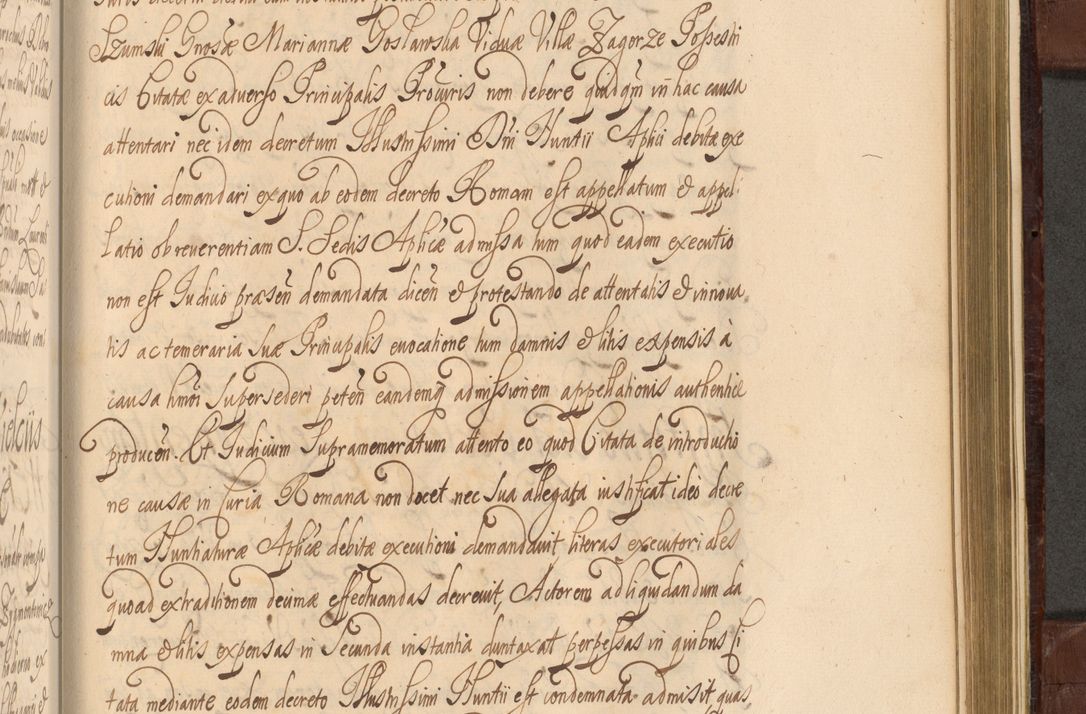 Szumski Gnosæ Mariannæ Goslawska Viduæ Villæ Zagorze Possessri
cis Citatæ ex adverso Principalis Procuris non debere quidqm in hac causa
attentari nec idem decretum Illustrissimi Dni Nuntii Aplici debitæ exe
cutioni demandari ex quo ab eodem decreto Romam est appellatum & appel
latio ob reverentiam S. Sedis Aplicæ admissa tum quod eadem executio
non est Iudicio præsen demandata dicen & protestando de attentatis & innova
tis ac temeraria suæ Principalis evocatione tum damnis & litis expensis à
causa hmoi supersederi peten eandemq admissionem appellationis authentice
producen. Et Iudicium supramemoratum attento eo quod Citata de introductio
ne causæ in Curia Romana non docet nec sua allegata iustificat ideo decre
tum Nuntiaturæ Aplicæ debitæ executioni demandavit literas executoriales
quoad extraditionem decimæ effectuandas decrevit, Actorem ad liquidandum da
mna & litis expensas in Secunda instantia duntaxat perpessas in quibus Ci
tata mediante eodem decreto Illustrissimi Nuntii est condemnata admisit quas